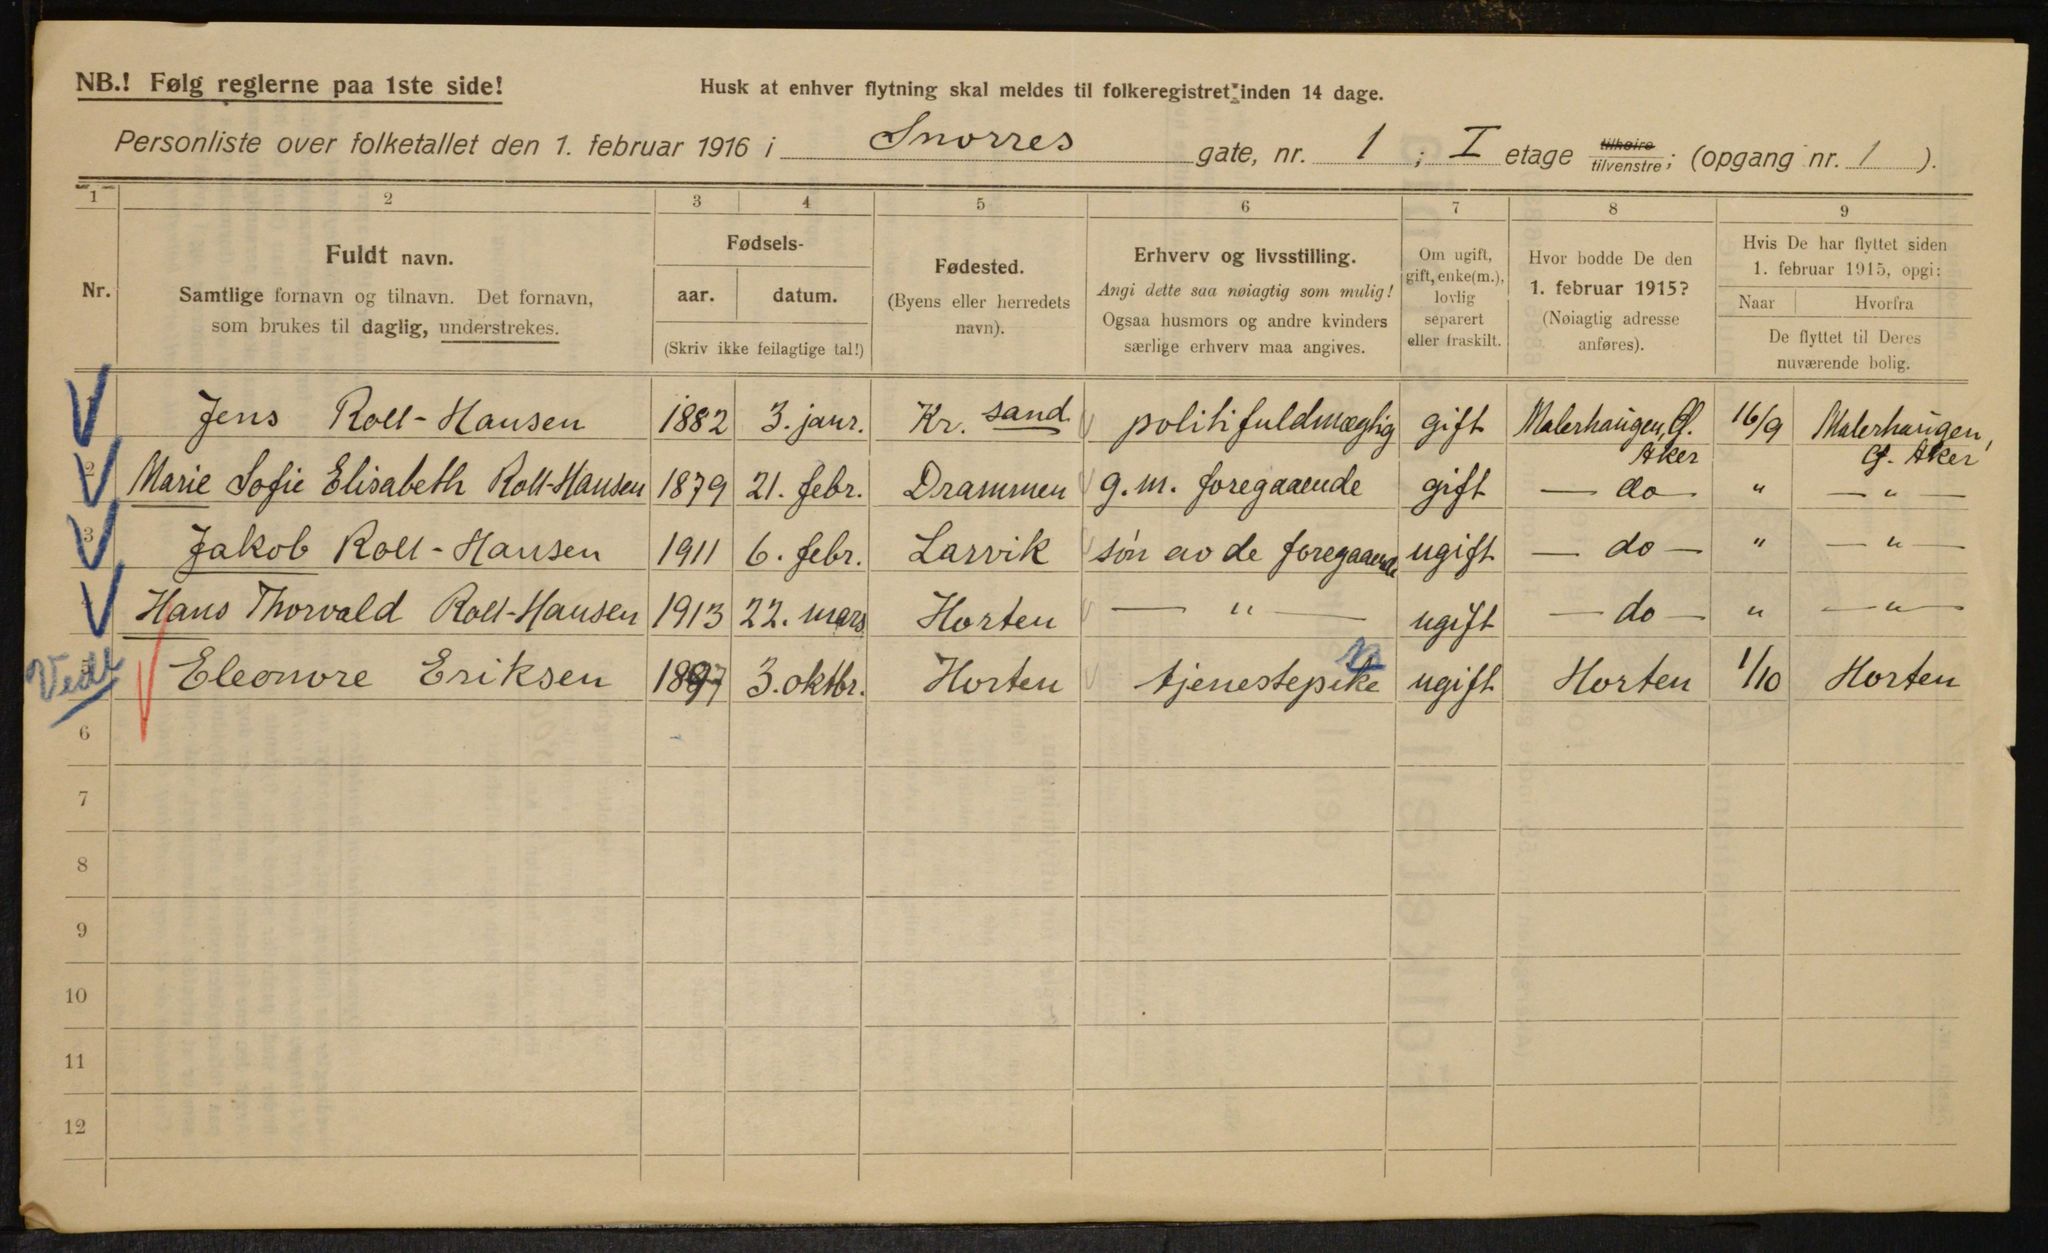 NB.! Følg reglerne paa 1ste side!
Husk at enhver flytning skal meldes til folkeregistret inden 14 dage.
Personliste over folketallet den 1. februar 1916 i Snorres gate, nr. 1; I etage tilhøire tilvenstre; (opgang nr. 1).
1 2 3 4 5 6 7 8 9
Nr.
Fuldt navn.
Samtlige fornavn og tilnavn. Det fornavn,
som brukes til daglig, understrekes.
Fødsels-
aar. datum.
(Skriv ikke feilagtige tal!)
Fødested.
(Byens eller herredets
navn).
Erhverv og livsstilling.
Angi dette saa nøiagtig som mulig!
Ogsaa husmors og andre kvinders
særlige erhverv maa angives.
Om ugift,
gift, enke(m.),
lovlig
separert
eller fraskilt.
Hvor bodde De den
1. februar 1915?
(Nøiagtig adresse
anføres).
Hvis De har flyttet siden
1. februar 1915, opgi:
Naar Hvorfra
De flyttet til Deres
nuværende bolig.
Jens Roll-Hansen 1882 3. janr. Kr. sand politifuldmægtig gift Malerhaugen, Ø. Aker 16/9 Malerhaugen, Ø. Aker
2 Marie Sofie Elisabeth Roll-Hansen 1879 21. febr. Drammen g. m. foregaaende gift — do — " — " —
3 Jakob Roll-Hansen 1911 6. febr. Larvik søn av de foregaaende ugift — do — " — " —
4 Hans Thorvald Roll-Hansen 1913 22. mars Horten — " — ugift — do — " — " —
5 Eleonore Eriksen 1897 3. oktbr. Horten tjenestepike ugift Horten 1/10 Horten
6
7
8
9
10
11
12